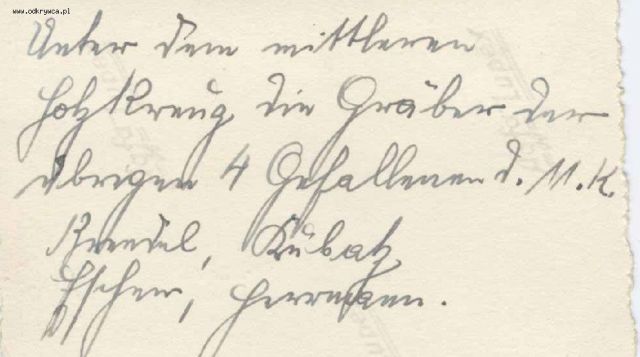 www.odkrywca.pl
Unter dem mittleren
Holzkreuz die Gräber der
übrigen 4 Gefallenen d. M.K.
Kubatz,
Herrmann.